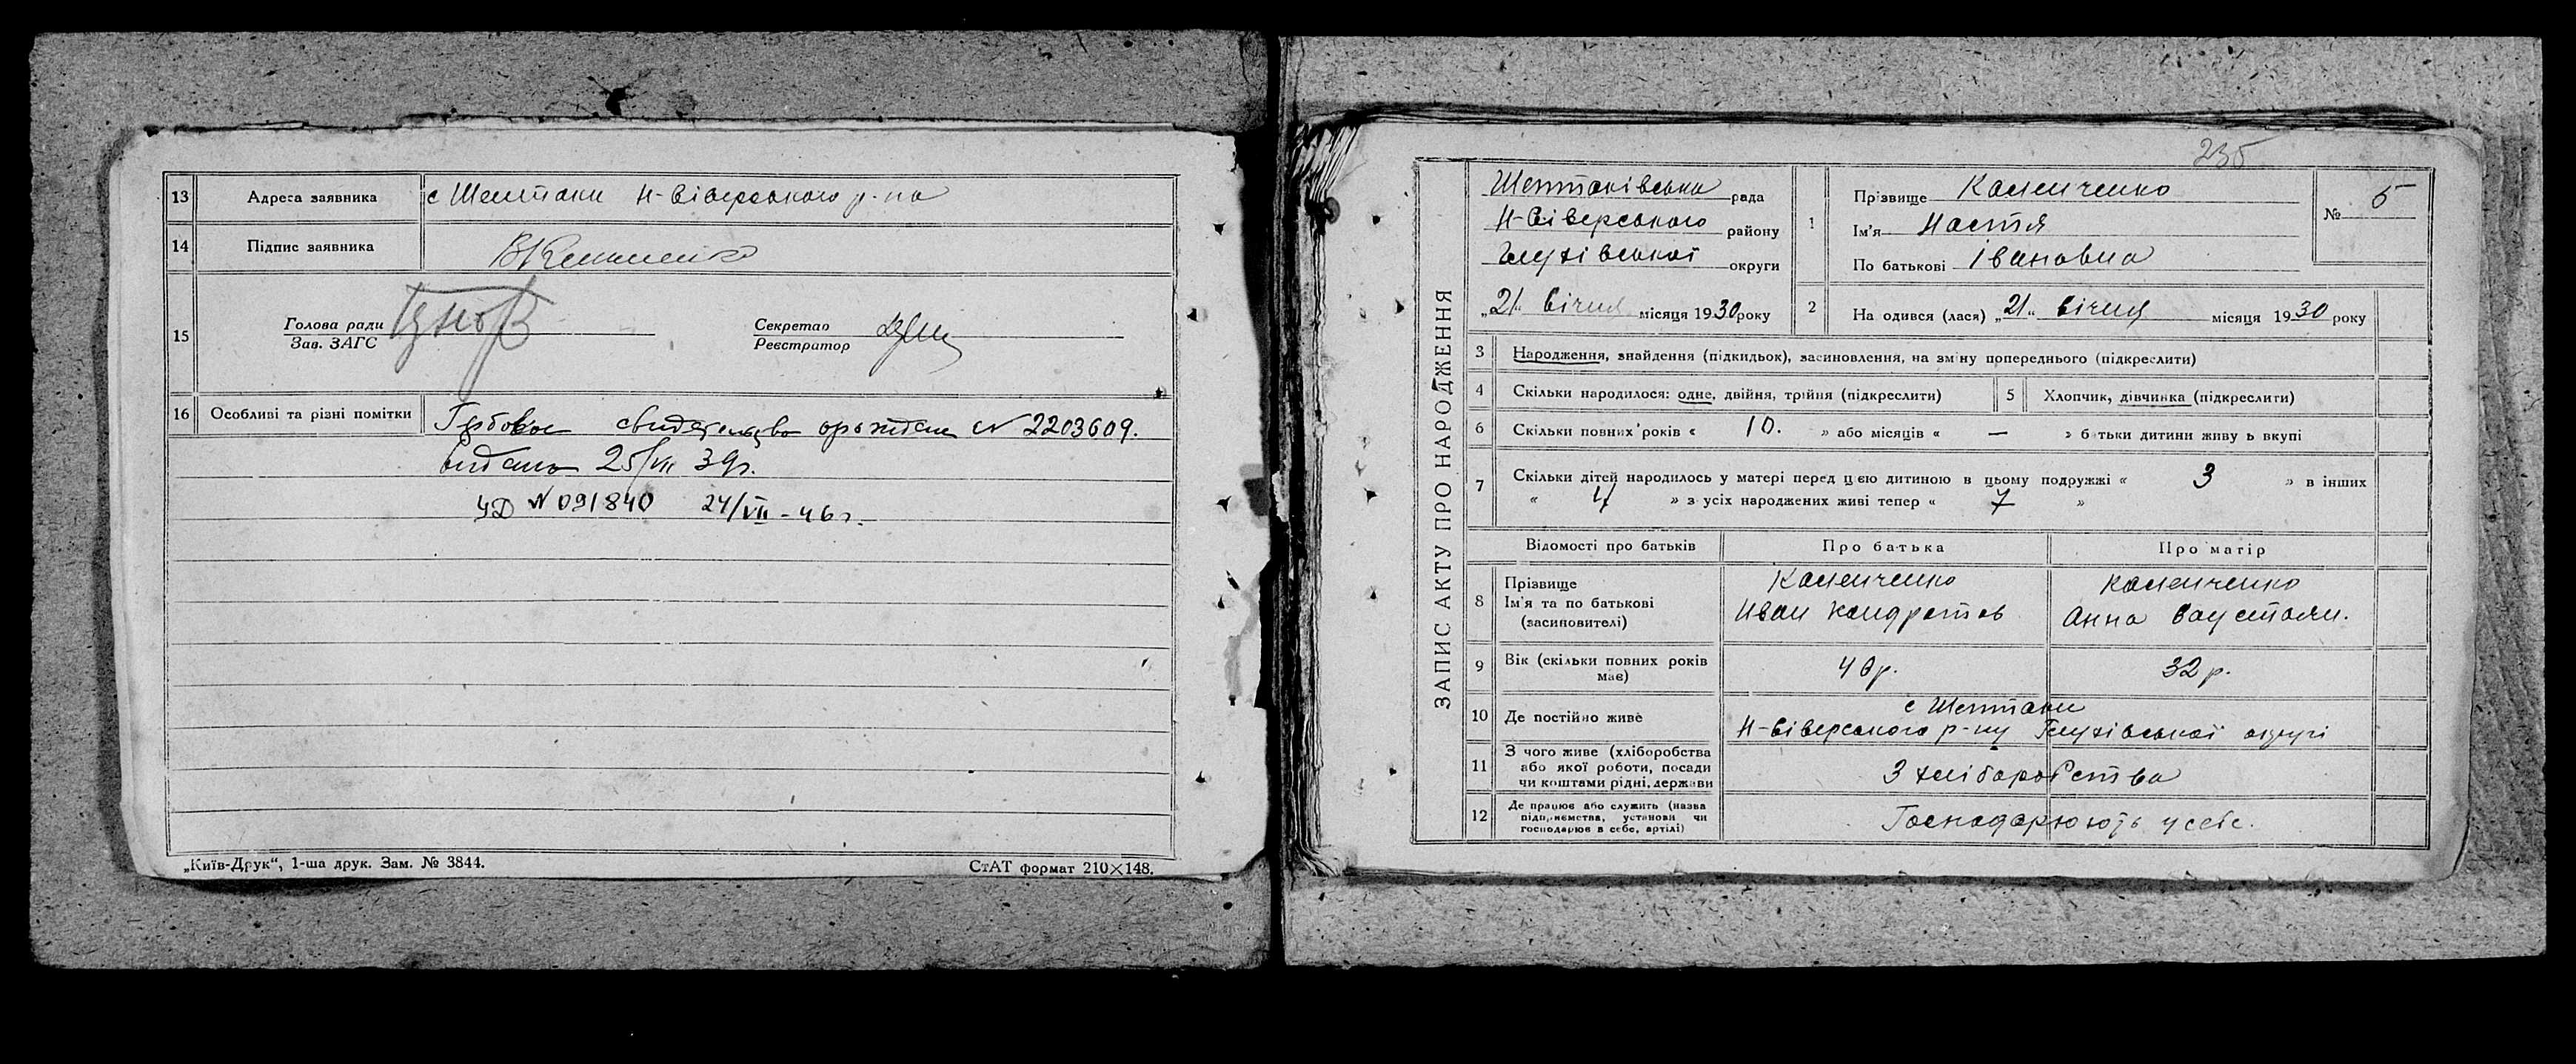 13 Адреса заявника с Шептаки Н-Сіверського р-на
14 Підпис заявника
15 Голова ради
Зав. ЗАГС
Секретар
Реєстратор
16 Особливі та різні помітки Гербовое свидетельство о рождении № 2203609.
видано 25/VII 39г.
ЧД № 091840 24/VII-46г.
„Київ-Друк“, 1-ша друк. Зам. № 3844.
СтАТ формат 210×148.
235
ЗАПИС АКТУ ПРО НАРОДЖЕННЯ
Шептаківська рада
Н-Сіверського району
Глухівської округи
„21“ Січня місяця 1930 року
1 Прізвище Каменченко
Ім'я Настя
По батькові Івановна
№ 5
2 На одився (лася) „21“ Січня місяця 1930 року
3 Народження, знайдення (підкидьок), засиновлення, на зміну попереднього (підкреслити)
4 Скільки народилося: одне, двійня, трійня (підкреслити)
5 Хлопчик, дівчинка (підкреслити)
6 Скільки повних років « 10. » або місяців « — » б тьки дитини живу ь вкупі
7 Скільки дітей народилось у матері перед цією дитиною в цьому подружжі « 3 » в інших
« 4 » з усіх народжених живі тепер « 7 »
Відомості про батьків Про батька Про матір
8 Прізвище
Ім'я та по батькові
(засиновителі)
Каменченко
Иван Кондратов
Каменченко
Анна
9 Вік (скільки повних років
має)
40р. 32р.
10 Де постійно живе
с Шептаки
Н-Сіверського р-ну Глухівської округі
11 З чого живе (хліборобства
або якої роботи, посади
чи коштами рідні, держави
З хліборобства
12 Де працює або служить (назва
підприємства, установи чи
господарює в себе, артілі)
Господарюють у себе.